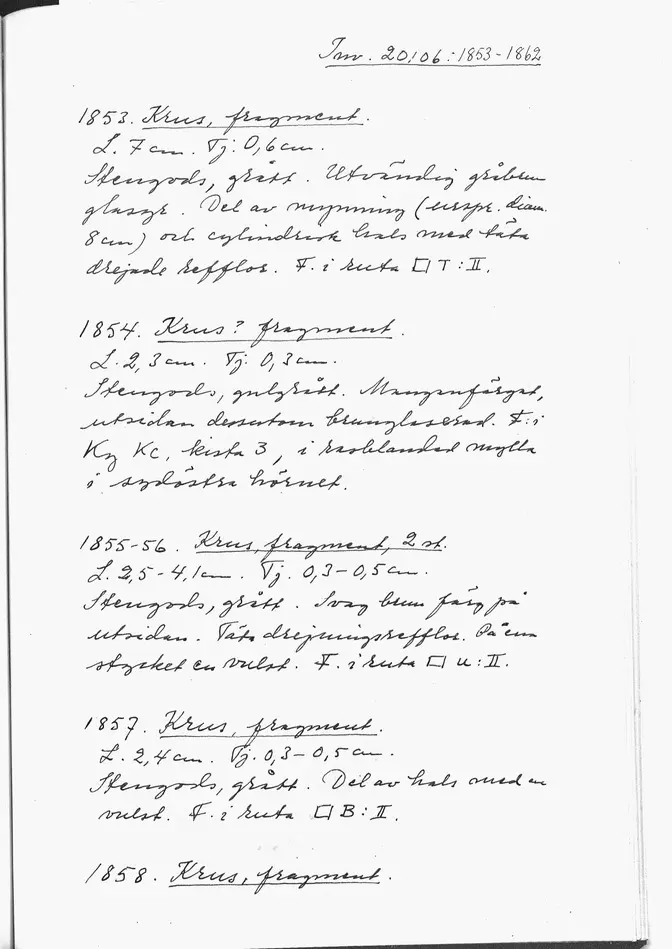 Inv. 20106:1853-1862
1853. Krus, fragment.
L. 7 cm. Tj: 0,6 cm.
Stengods, grått. Utvändig gråbrun
glasyr. Del av mynning (urspr. diam.
8 cm) och cylindrisk hals med täta
drejade refflor. F. i ruta □ T:II.
1854. Krus? fragment.
L. 2,3 cm. Tj: 0,3 cm.
Stengods, gulgrått. Manganfärgat,
utsidan dessutom brunglaserad. F. i
Kg Kc, kista 3, i rasblandad mylla
i sydöstra hörnet.
1855-56. Krus, fragment, 2 st.
L. 2,5-4,1 cm. Tj. 0,3-0,5 cm.
Stengods, grått. Svag brun färg på
utsidan. Täta drejningsrefflor. På ena
stycket en vulst. F. i ruta □ U:II.
1857. Krus, fragment.
L. 2,4 cm. Tj. 0,3-0,5 cm.
Stengods, grått. Del av hals med en
vulst. F. i ruta □ B:II.
1858. Krus, fragment.